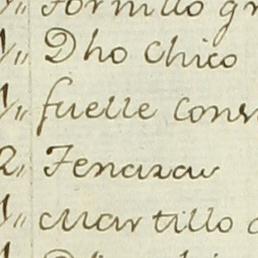 1,, Tornillo gr
1,, Dho chico
1,, fuelle cons
2,, Tenazas
1,, Martillo